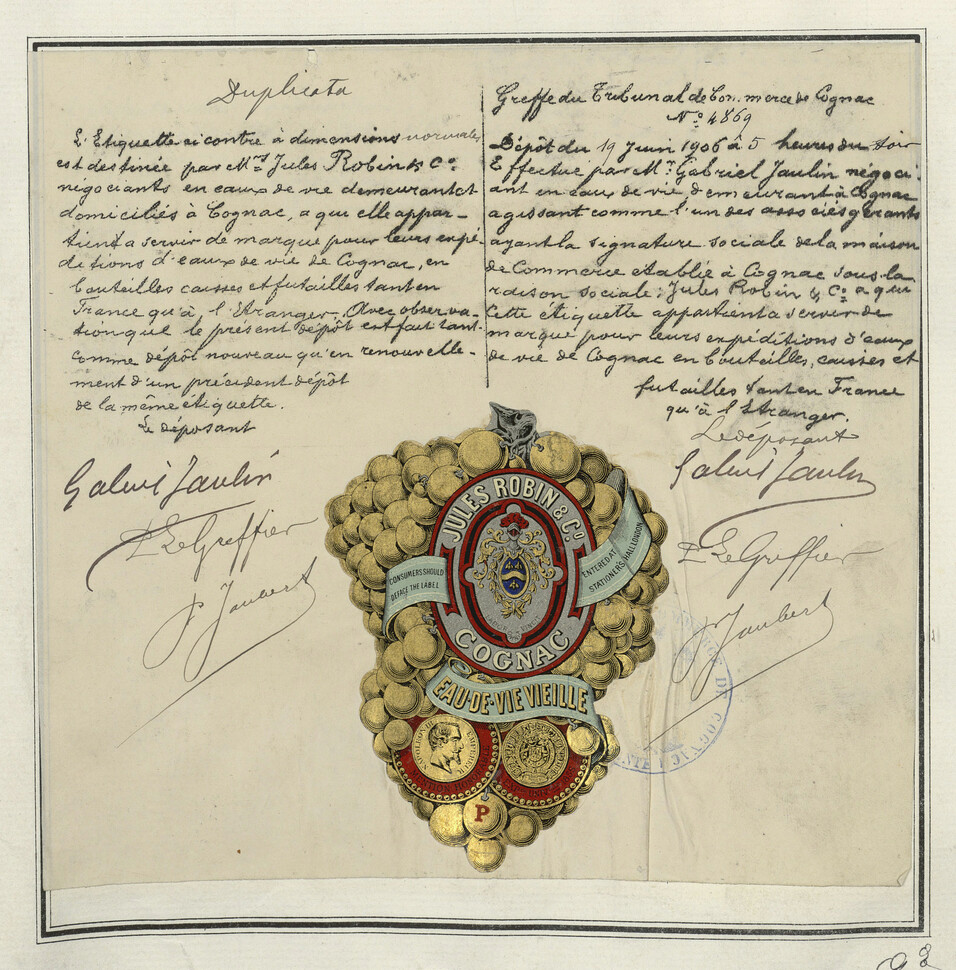 Duplicata
L'Etiquette ci contre à dimensions normales
est destinée par Mrs Jules Robin & Co.
négociants en eaux de vie demeurant et
domiciliés à Cognac, a qui elle appar-
tient a servir de marque pour leurs expé-
ditions d'eaux de vie de Cognac, en
bouteilles caisses et futailles tant en
France qu'à l'Etranger. Avec observa-
tion que le présent dépôt est fait tant
comme dépôt nouveau qu'en renouvelle-
ment d'un précédent dépôt
de la même étiquette.
Le déposant
Gabriel Jaulin
P. Le Greffier
P. Jaubert
Greffe du Tribunal de Commerce de Cognac
No 4869
Dépôt du 19 Juin 1906 à 5 heures du soir
Effectué par Mr. Gabriel Jaulin négoci-
ant en eaux de vie, demeurant à Cognac
agissant comme l'un des associés gérants
ayant la signature sociale de la maison
de Commerce établie à Cognac sous la
raison sociale: Jules Robin & Co. a qui
cette étiquette appartient a servir de
marque pour leurs expéditions d'eaux
de vie de Cognac en bouteilles, caisses et
futailles tant en France
qu'à l'Etranger.
Le déposant
Gabriel Jaulin
P. Le Greffier
P. Jaubert
JULES ROBIN & Co.
CONSUMERS SHOULD
DEFACE THE LABEL
ENTERED AT
STATIONER'S HALL LONDON
COGNAC
EAU-DE-VIE VIEILLE
P
DE COGNAC
93